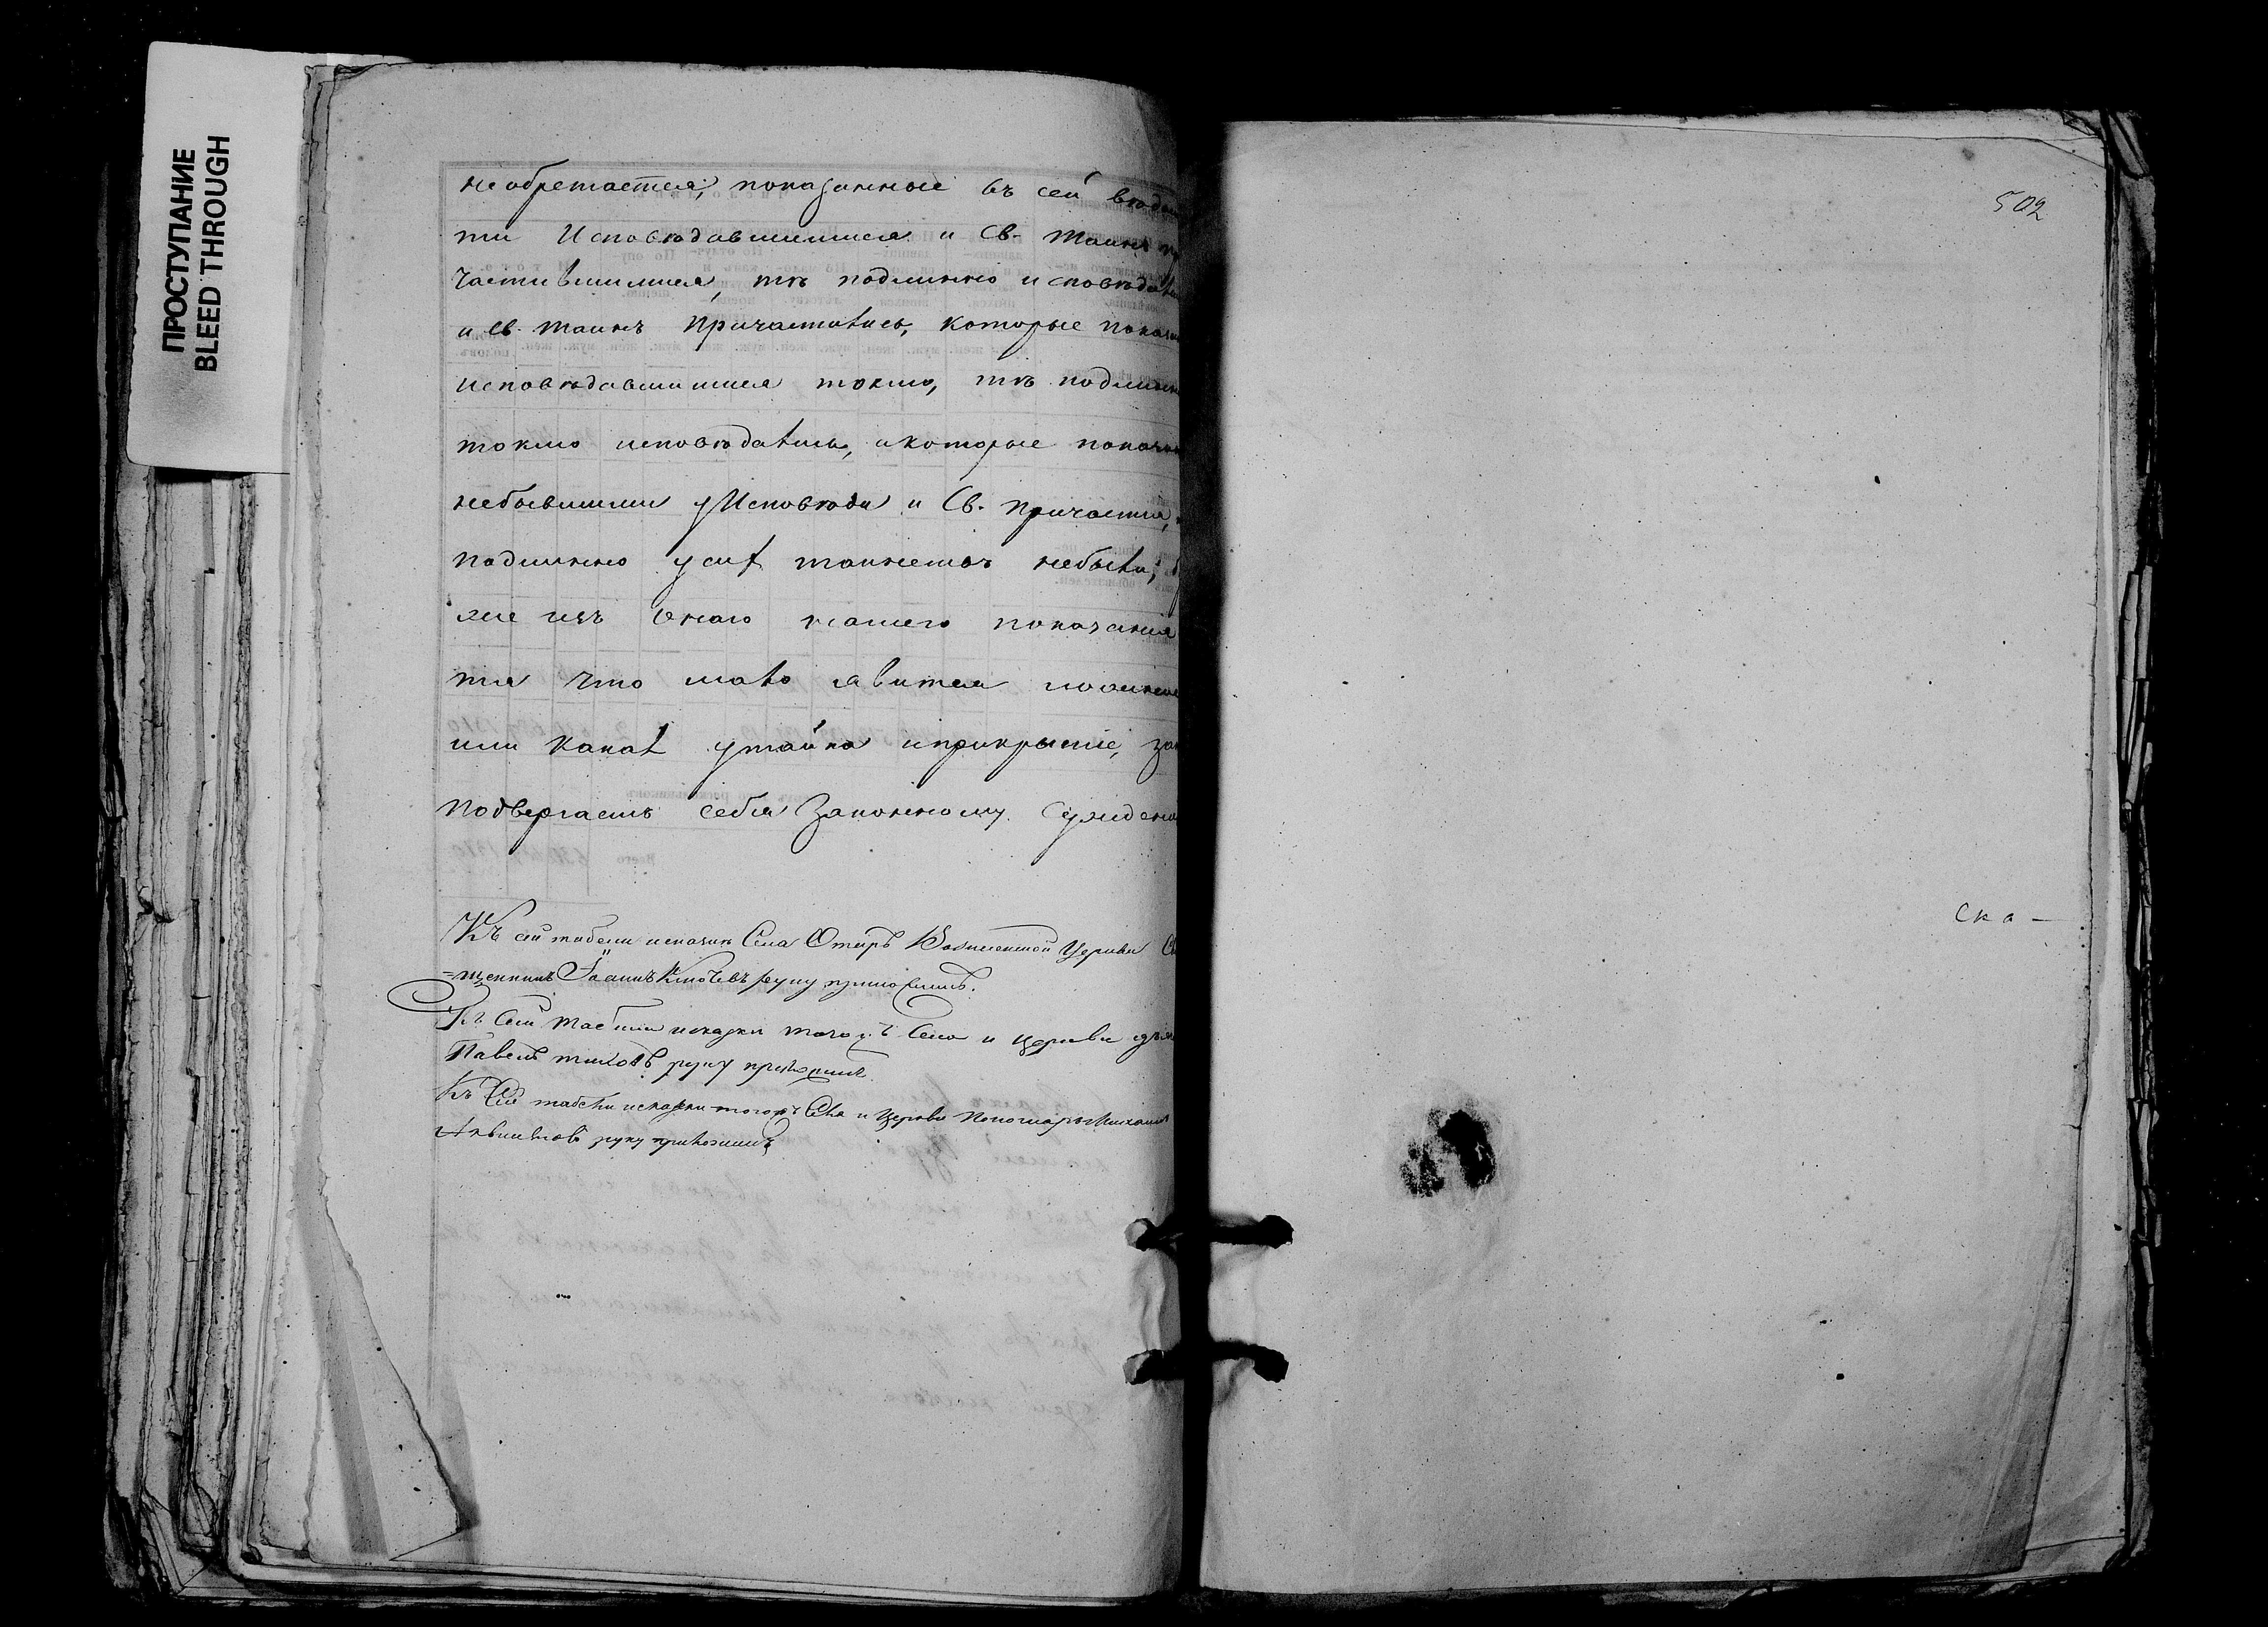 ПРОСТУПАНИЕ
BLEED THROUGH
необретается, показанные въ сей
ти Исповѣдавшимися и Св. Таинъ
частившимися, тѣ подлинно исповѣда
и св. таинъ причастились, которые показ
исповѣдавшимися токмо, тѣ подлин
токмо исповѣдались, а которые показ
небывшими у Исповѣди и Св. причастія,
подлинно у сихъ таинствъ небыли,
же изъ онаго нашего показания
тя что мало явится
или какая утайка и прикрытіе, за
подвергаемъ себя Законному Сужден
Къ сей табели и сказки Села Церкви Св
=щенникъ Іоаннъ руку приложилъ.
Къ сей табели и сказки тогожъ Села и Церкви
Павелъ руку приложилъ
Къ Сей табели и сказки тогожъ Села и Церкви Пономарь
руку приложилъ
502
Ска-